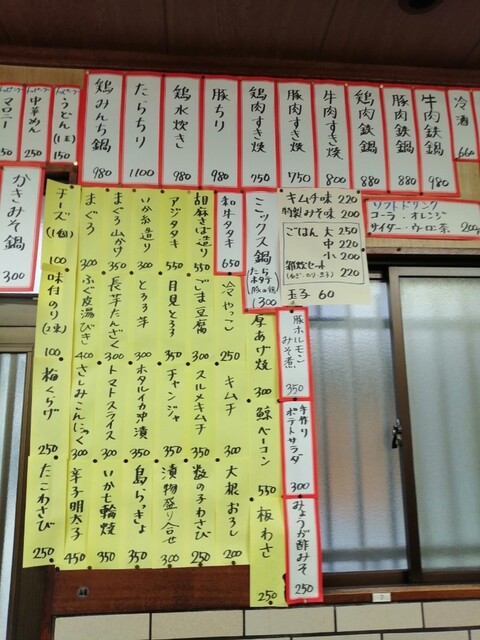 冷酒 660
牛肉鉄鍋 980
豚肉鉄鍋 880
鶏肉鉄鍋 880
牛肉すき焼 800
豚肉すき焼 750
鶏肉すき焼 750
豚ちり 980
鶏水炊き 980
たらちり 1100
鶏みんち鍋 980
うどん(1玉) 150
中華めん 250
マロニー
かきみそ鍋
300
ソフトドリンク
コーラ・オレンジ
サイダー・ウーロン茶 200
キムチ味 220
特製みそ味 200
ごはん 大 250
中 220
小 200
雑炊セット 220
(ねぎ・のり・玉子)
玉子 60
ミックス鍋
1300
和牛タタキ 650
胡麻さば造り 550
アジタタキ 550
いか糸造り 300
まぐろ山かけ 350
まぐろ 300
チーズ(1個) 100
冷やっこ 250
ごま豆腐 300
月見とろろ 350
とろろ芋 300
長芋たんざく 300
ふぐ皮湯びき 400
味付のり(2束) 100
厚あげ焼 300
キムチ 300
スルメキムチ 350
チャンジャ 350
ホタルイカ沖漬 350
トマトスライス 300
さしみこんにゃく 300
梅くらげ 250
鯨ベーコン 550
大根おろし 200
数の子わさび 250
漬物盛り合せ 300
島らっきょ 350
いか七輪焼 350
辛子明太子 450
たこわさび 250
板わさ 250
豚ホルモンみそ煮 350
手作りポテトサラダ 300
みょうが酢みそ 250